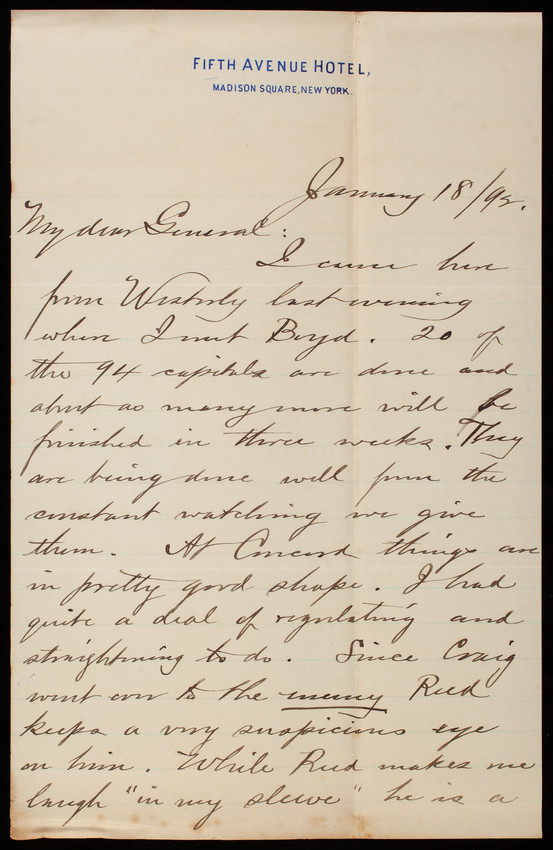 FIFTH AVENUE HOTEL,
MADISON SQUARE, NEW YORK.
January 18/92.
My dear General:
I came here
from Westerly last evening
where I met Boyd. 20 of
the 94 capitals are done and
about as many more will be
finished in three weeks. They
are being done well from the
constant watching we give
them. At Concord things are
in pretty good shape. I had
quite a deal of regulating and
straightening to do. Since Craig
went over to the enemy Reed
keeps a very suspicious eye
on him. While Reed makes me
laugh "in my sleeve" he is a